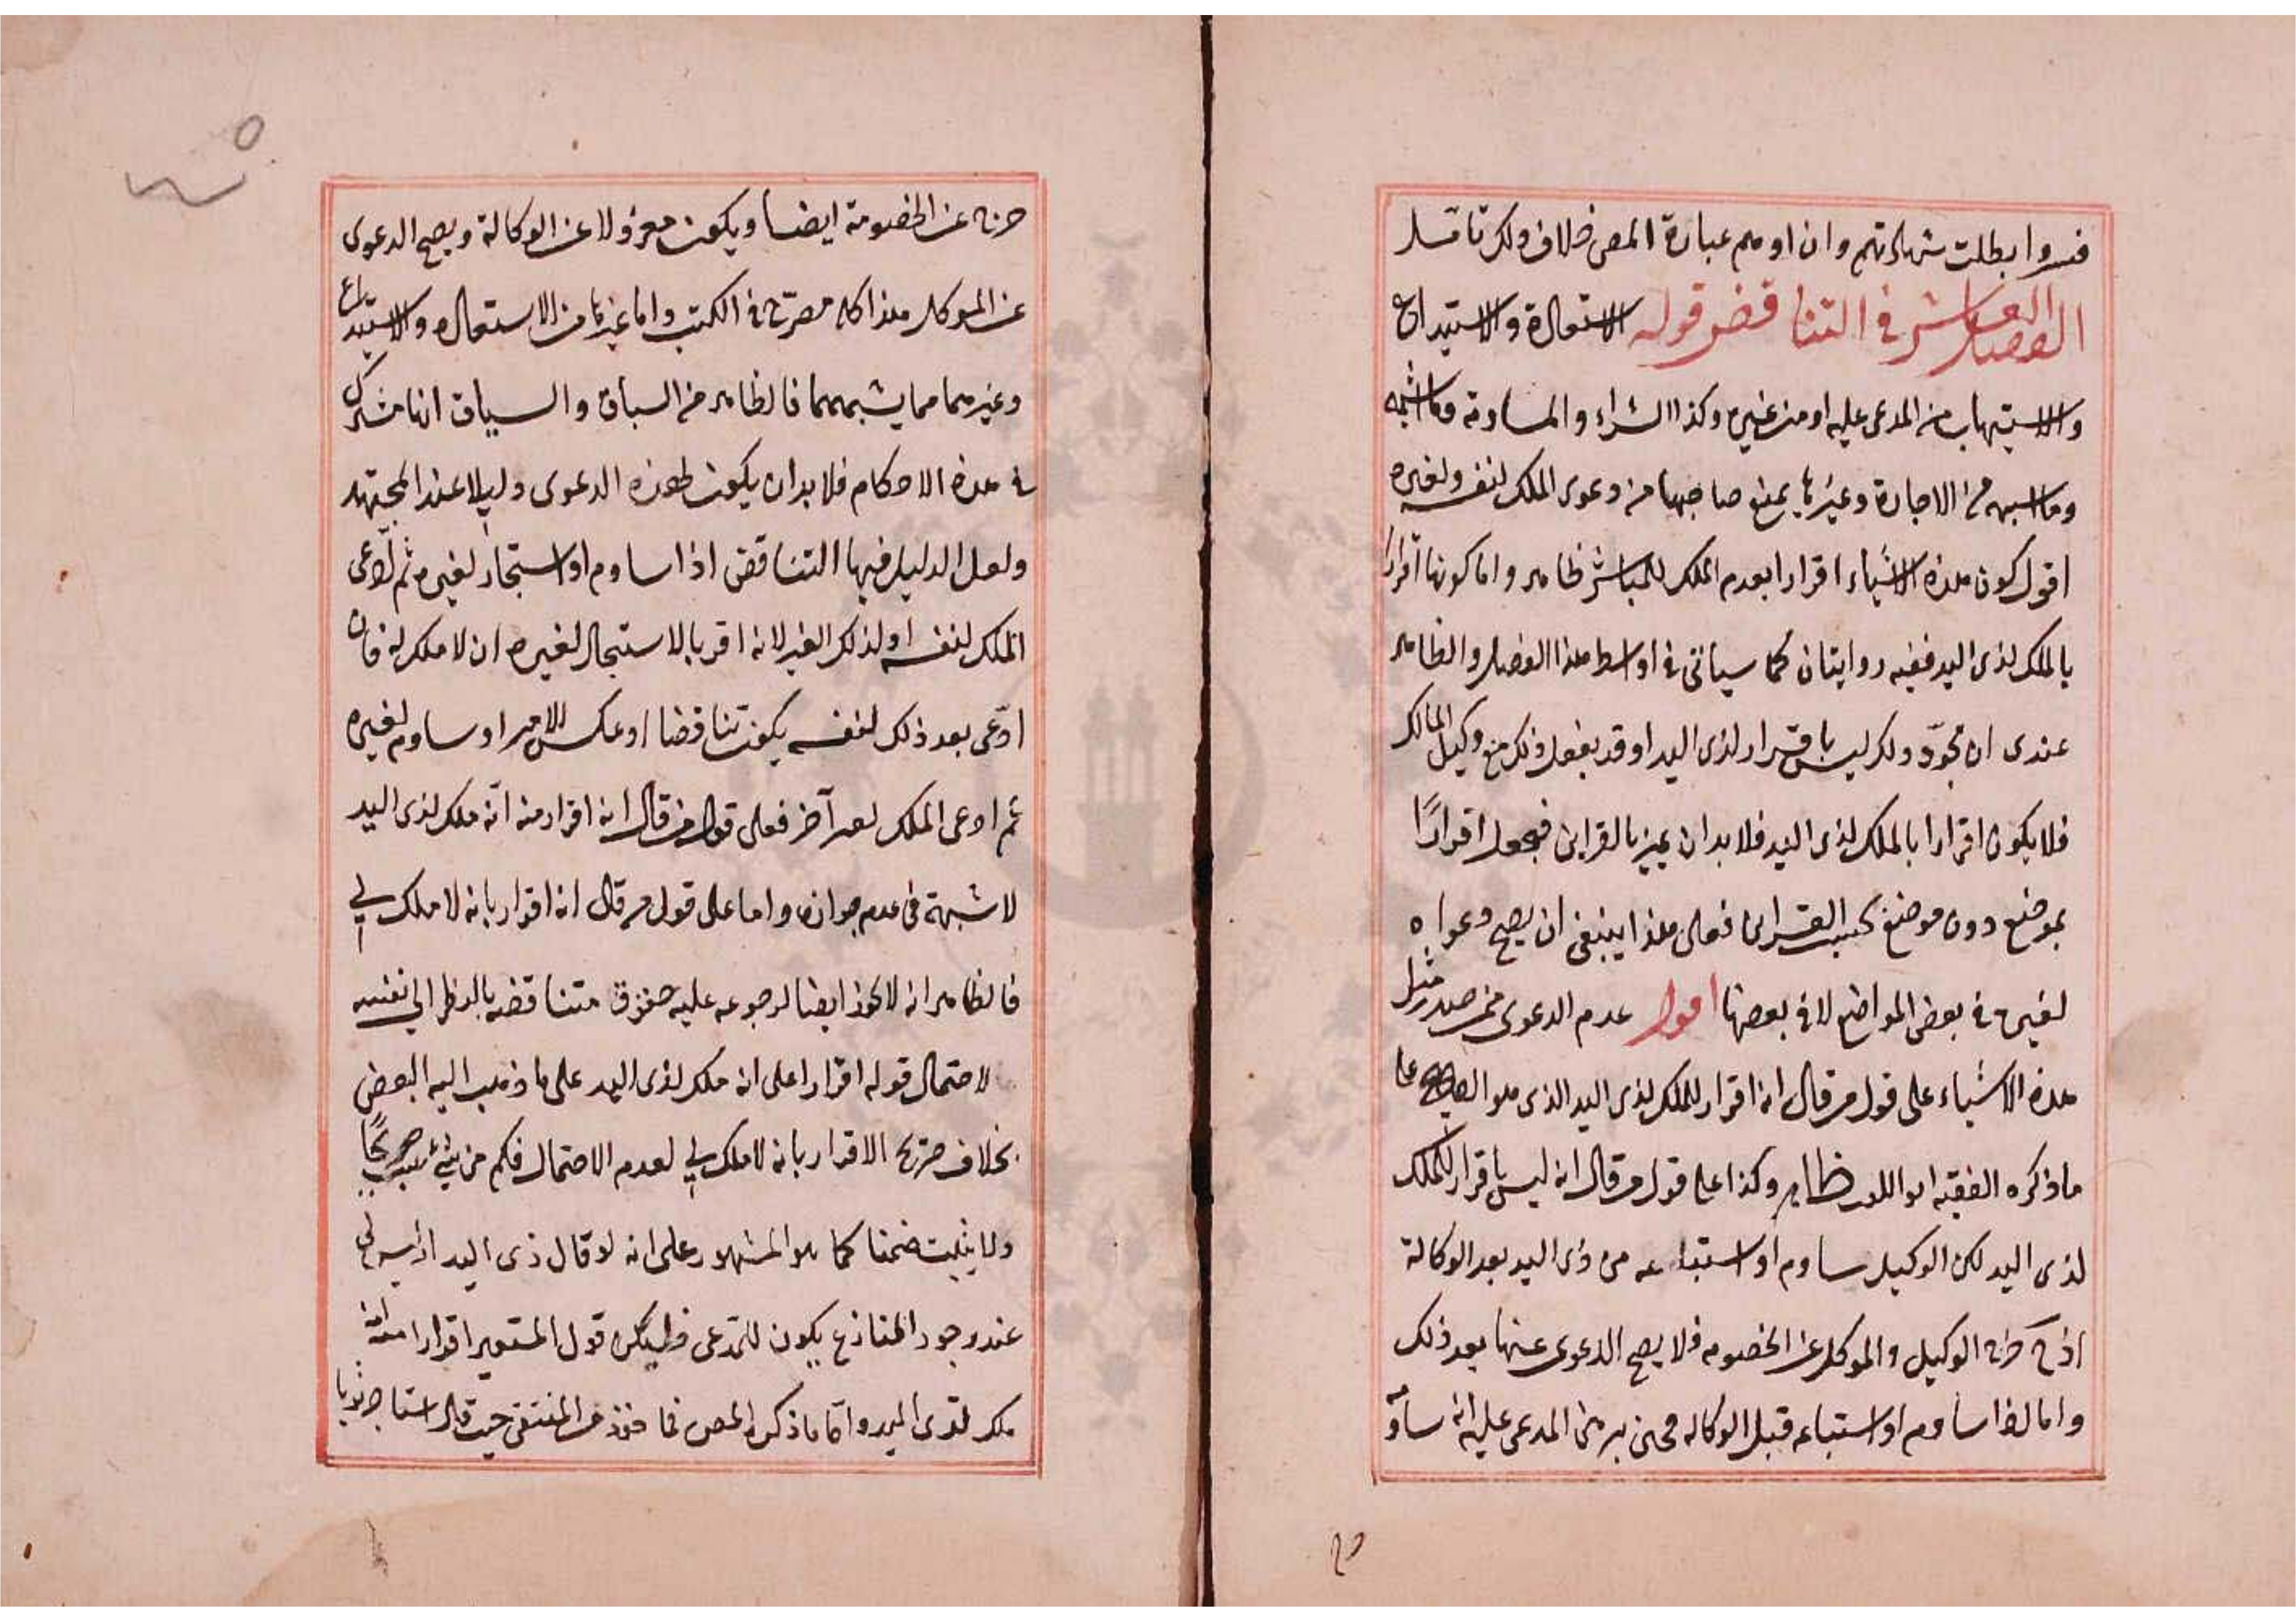 فسروا بطلت شهادتهم وان اوهم عبارة المص خلاف ذلك تأمل
الفصل العاشر في التناقض قوله الاستعارة والاستيداع
والاستيهاب من المدعى عليه او من غيره وكذا الشراء والمساومة وما اشبهه
وما اشبهه من الاجارة وغيرها يمنع صاحبها من دعوى الملك لنفسه ولغيره
اقول كون هذه الاشياء اقرارا بعدم الملك للمباشر ظاهر واما كونها اقرارا
بالملك لذى اليد ففيه روايتان كما سيأتي في اواسط هذا الفصل والظاهر
عندى ان مجرد ذلك ليس باقرار لذى اليد اذ قد يفعل ذلك مع وكيل المالك
فلا يكون اقرارا بالملك لذى اليد فلا بد ان يميز بالقراين فيجعل اقرارًا
بموضع دون موضع بحسب القراين فعلى هذا ينبغى ان يصح دعواه
لغيره في بعض المواضع لا في بعضها اقول عدم الدعوى ممن صدر مثل
هذه الاشياء على قول من قال انه اقرار للملك لذى اليد الذى هو الصحيح على
ما ذكره الفقيه ابو الليث ظاهر وكذا على قول من قال انه ليس باقرار للملك
لذى اليد لكن الوكيل ساوم او استباعه من ذى اليد بعد الوكالة
اذ خرج الوكيل والموكل عن الخصومه فلا يصح الدعوى عنها بعد ذلك
واما اذا ساوم او استباعه قبل الوكاله فحين برهن المدعى عليه انه ساوم
خرج عن الخصومة ايضا ويكون معزولا عن الوكالة ويصح الدعوى
عن الموكل هذا كله مصرح في الكتب واما غيرها من الاستعاره والاستيداع
وغيرهما مما يشبههما فالظاهر من السباق والسياق انها مشترك
في هذه الاحكام فلا بد ان يكون لهذه الدعوى دليلا عند المجتهد
ولعل الدليل فيها التناقض اذا ساوم او استيجار لغيره ثم ادّعى
الملك لنفسه او لذلك الغير لانه اقر بالاستيجار لغيره ان لا ملك له فان
ادّعى بعد ذلك لنفسه يكون تناقضا او عكس الامر او ساوم لغيره
ثم ادعى الملك لغير آخر فعلى قول من قال انه اقرار منه انّه ملك لذى اليد
لا شبهة فى عدم جوازه واما على قول من قال انه اقرار بانه لا ملك لي
فالظاهر انه لا يكون ايضا لرجوعه عليه حقوق متناقضه بالنظر الى نفسه
لاحتمال قوله اقرارا على انه ملك لذى اليد على ما ذهب اليه البعض
بخلاف صريح الاقرار بانه لا ملك لي لعدم الاحتمال فكم من شئ يثبت صريحًا
ولا يثبت ضمنا كما هو المشهور على انه لو قال ذى اليد اذ ليس لي
عند وجود المنازع يكون للمدعى فليكن قول المستعير اقرارا منه انه
ملك لذى اليد وامّا ما ذكره المص فماخوذ من المنتقى حيث قال استاجر ثوبا